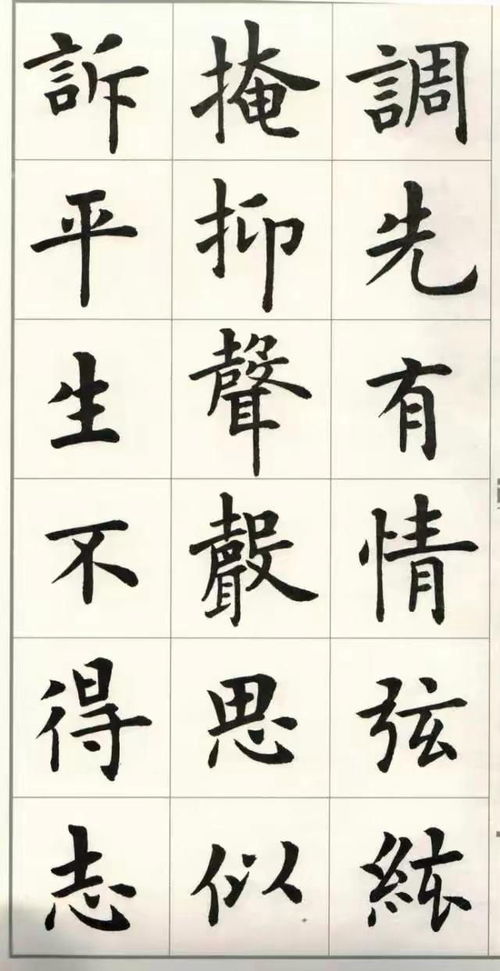 調先有情弦絃
掩抑聲聲思似
訴平生不得志